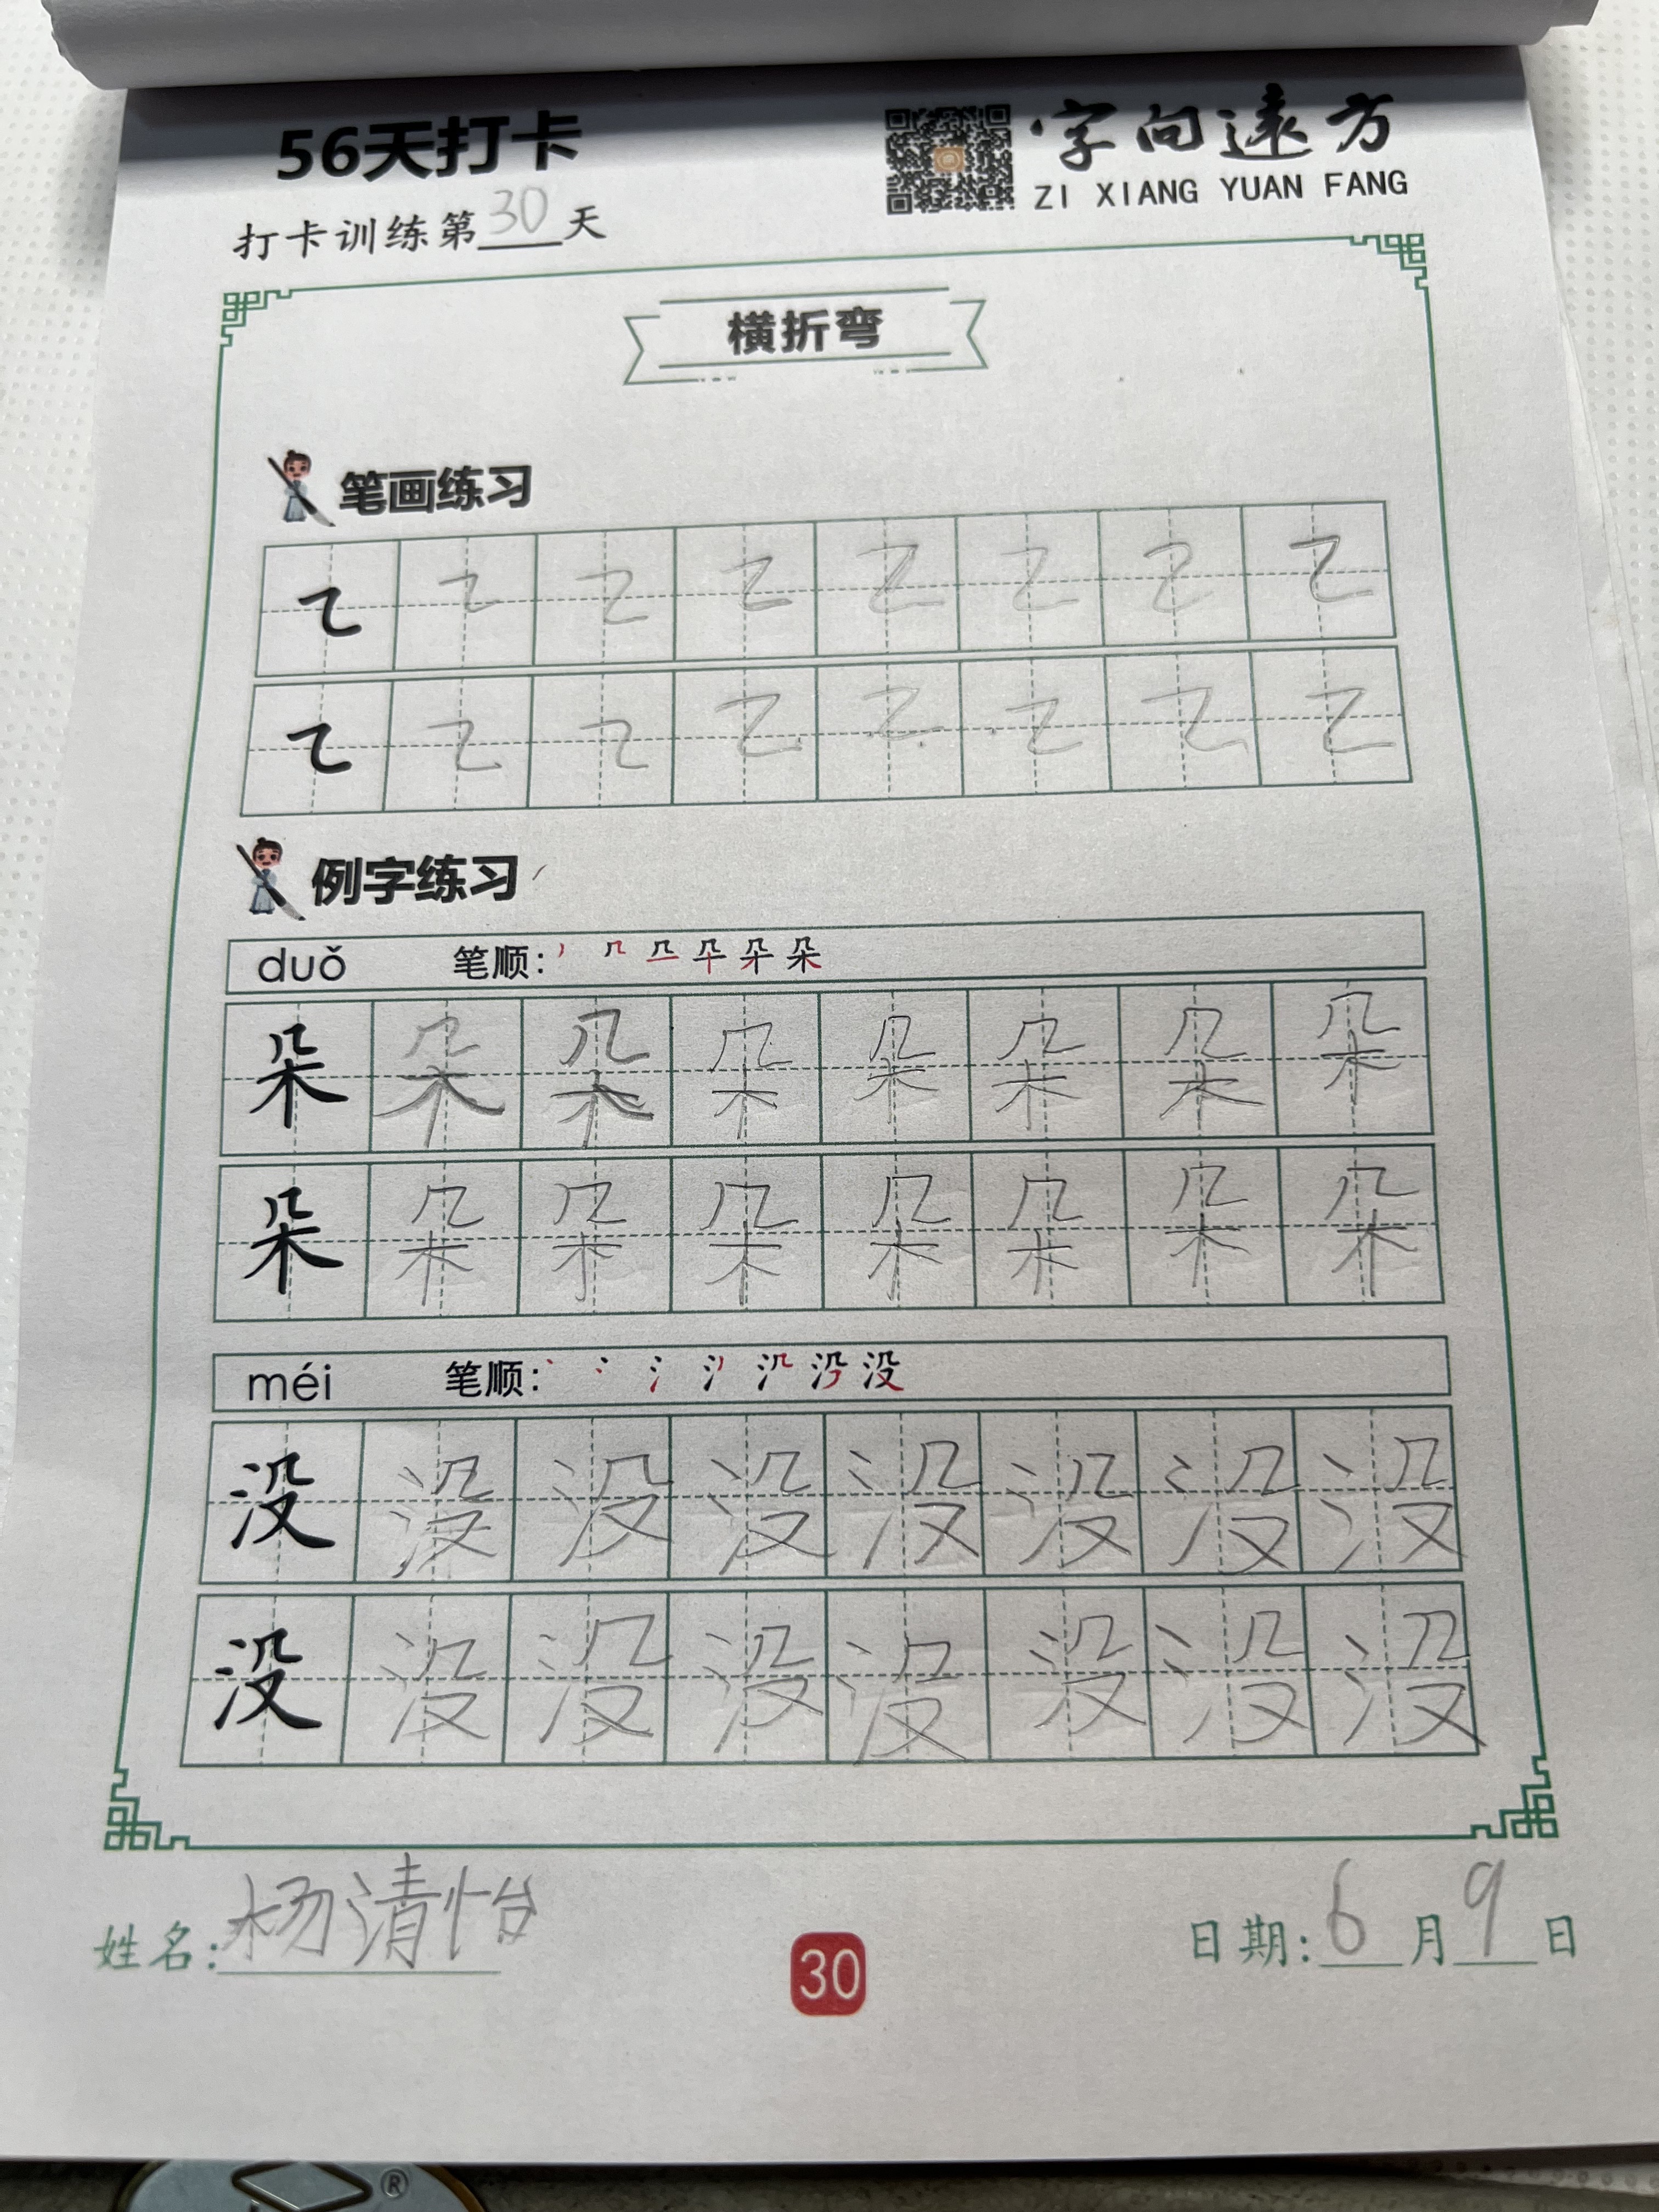 56天打卡
字向遠方
ZI XIANG YUAN FANG
打卡训练第30天
横折弯
笔画练习
㇍ ㇍ ㇍ ㇍ ㇍ ㇍ ㇍ ㇍
㇍ ㇍ ㇍ ㇍ ㇍ ㇍ ㇍ ㇍
例字练习
duǒ 笔顺:
朵 朵 朵 朵 朵 朵 朵 朵
朵 朵 朵 朵 朵 朵 朵 朵
méi 笔顺:
没 没 没 没 没 没 没 没
没 没 没 没 没 没 没 没
姓名:杨清怡
30
日期:6月9日
®